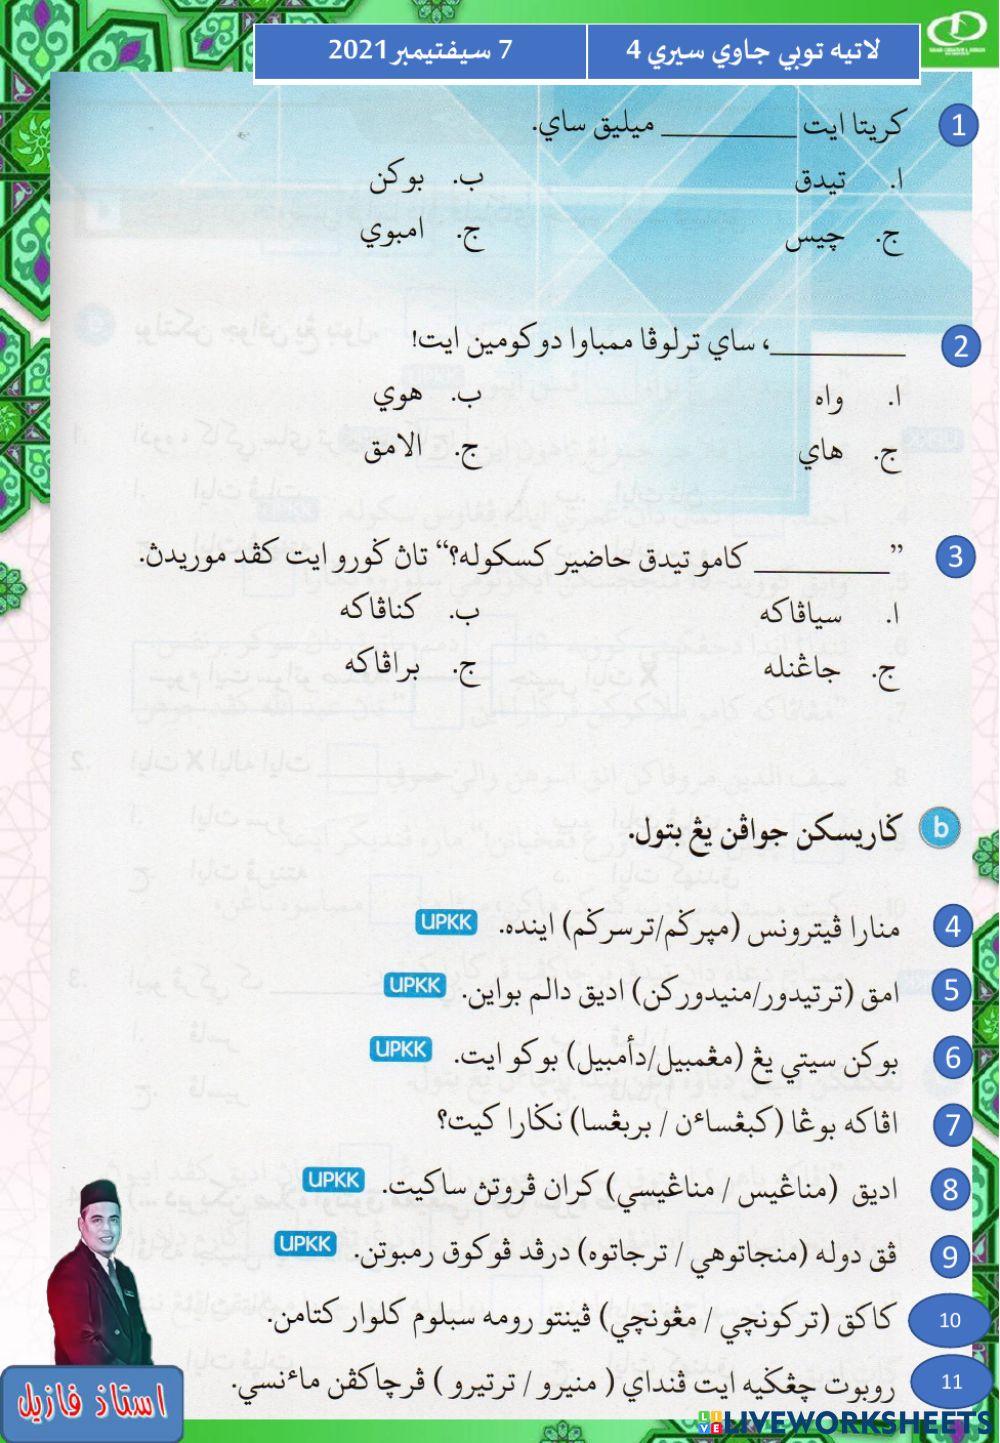 لاتيه توبي جاوي سيري 4
7 سيفتيمبر 2021
1 كريتا ايت ________ ميليق ساي.
ا. تيدق ب. بوكن
ج. چيس ج. امبوي
2 ________، ساي ترلوڤا ممباوا دوكومين ايت!
ا. واه ب. هوي
ج. هاي ج. الامق
3 ”________ كامو تيدق حاضير كسكوله؟“ تاڽ ڬورو ايت كڤد موريدڽ.
ا. سياڤاكه ب. كناڤاكه
ج. جاڠنله ج. براڤاكه
b ڬاريسكن جواڤن يڠ بتول.
4 منارا ڤيترونس (مپرڬم/ترسرڬم) اينده. UPKK
5 امق (ترتيدور/منيدوركن) اديق دالم بواين. UPKK
6 بوكن سيتي يڠ (مڠمبيل/دأمبيل) بوكو ايت. UPKK
7 اڤاكه بوڠا (كبڠساءن / بربڠسا) نڬارا كيت؟
8 اديق (مناڠيس / مناڠيسي) كران ڤروتڽ ساكيت. UPKK
9 ڤق دوله (منجاتوهي / ترجاتوه) درڤد ڤوكوق رمبوتن. UPKK
10 كاكق (تركونچي / مڠونچي) ڤينتو رومه سبلوم كلوار كتامن.
11 روبوت چڠݢيه ايت ڤنداي ( منيرو / ترتيرو ) ڤرچاكڤن ماءنسي.
استاذ فازيل
LIVEWORKSHEETS